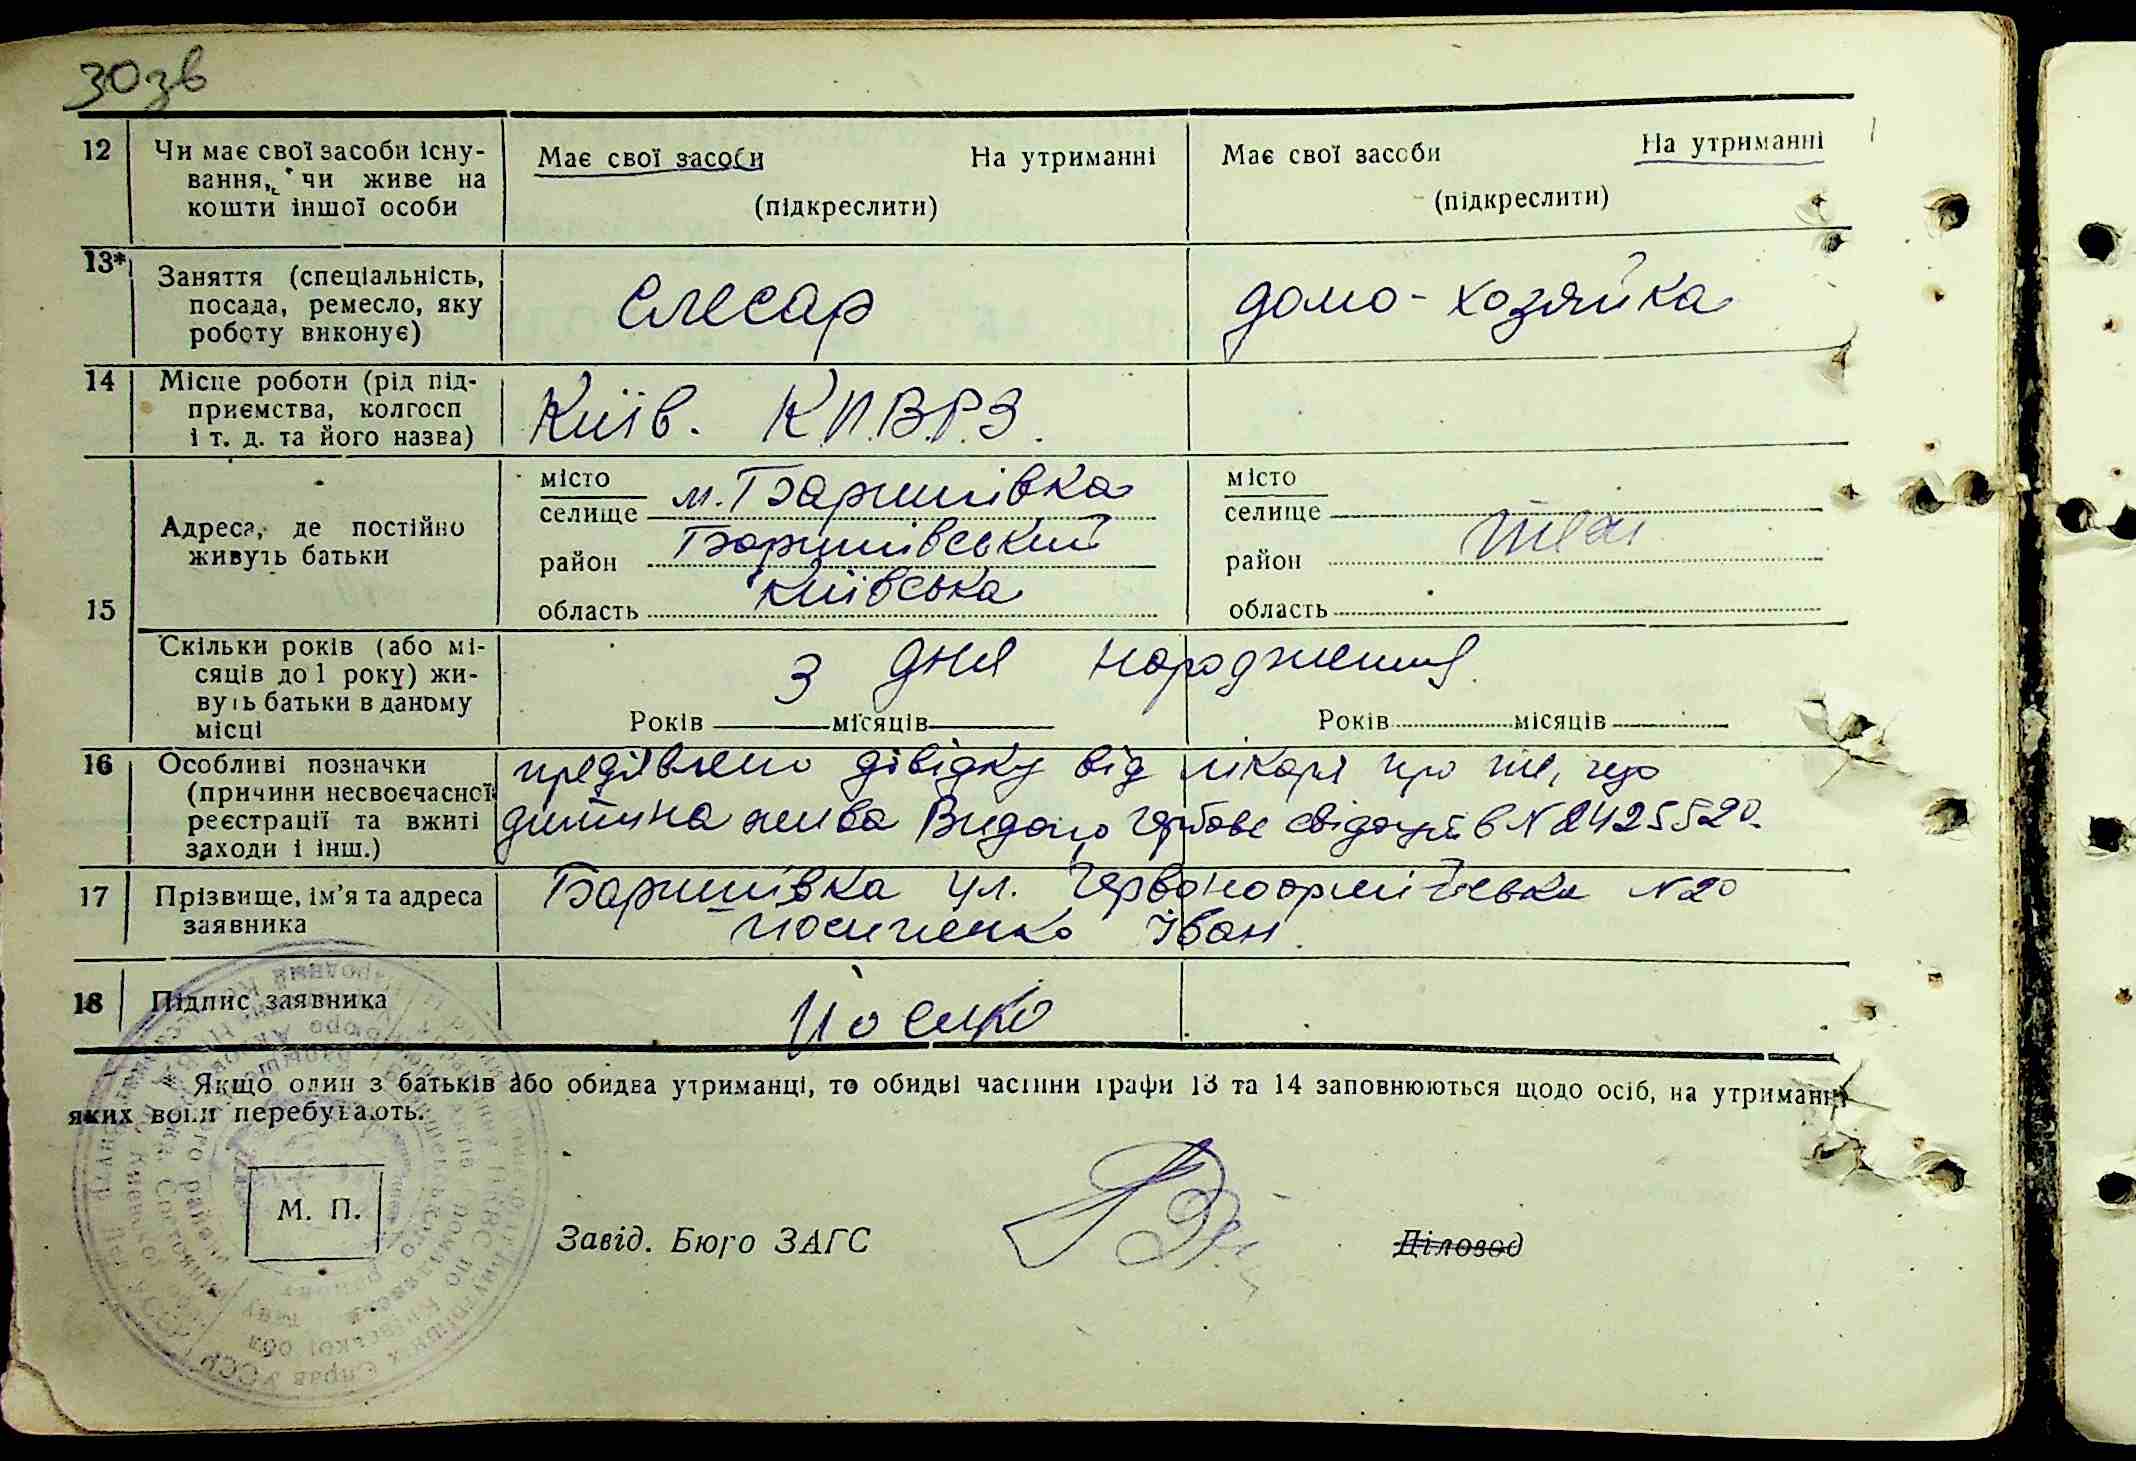 30зв
12 Чи має свої засоби існу-
вання, чи живе на
кошти іншої особи
Має свої засоби На утриманні
(підкреслити)
Має свої засоби На утриманні
(підкреслити)
13* Заняття (спеціальність,
посада, ремесло, яку
роботу виконує)
Слесар
домо-хозяйка
14 Місце роботи (рід під-
приємства, колгосп
і т. д. та його назва)
Київ. К.П.В.Р.З.
15
Адреса, де постійно
живуть батьки
місто
селище м. Баришівка
район Баришівський
область Київська
місто
селище
район
область
Скільки років (або мі-
сяців до 1 року) жи-
вуть батьки в даному
місці
З дня народження
Років місяців
Років місяців
16 Особливі позначки
(причини несвоєчасної
реєстрації та вжиті
заходи і інш.)
предявлено довідку від лікаря про те, що
дитина жива Видано гербове N 2425520
17 Прізвище, ім'я та адреса
заявника
Баришівка ул. Червоноармійська N 20
Йосипенко Іван.
18 Підпис заявника
Якщо один з батьків або обидва утриманці, то обидві частини графи 13 та 14 заповнюються щодо осіб, на утриманні
яких вони перебувають.
М. П.
Завід. Бюро ЗАГС
Діловод